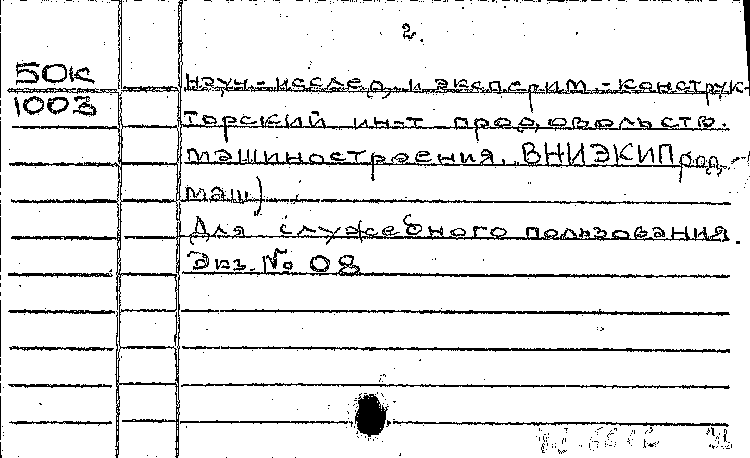 2.
50к
1003
науч.-исслед. и эксперим.-конструк-
торский ин-т продовольств.
машиностроения. ВНИЭКИПрод-
маш)
Для служебного пользования.
Экз. № 08